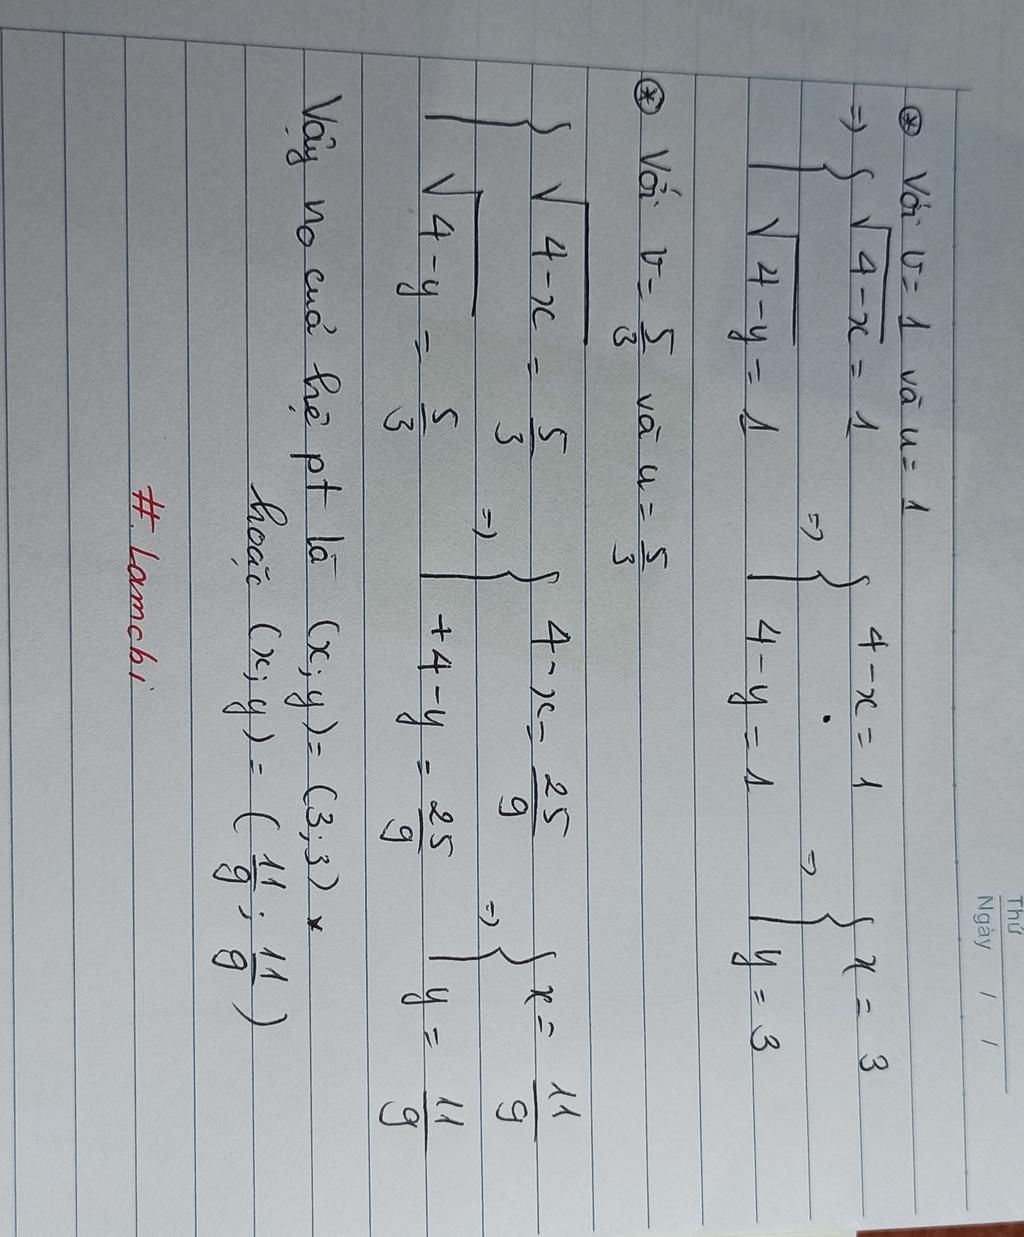 Thứ
Ngày / /
⊛ Với v = 1 và u = 1
=> { √4-x = 1 => { 4-x = 1 => { x = 3
√4-y = 1 4-y = 1 y = 3
⊛ Với v = 5/3 và u = 5/3
{ √4-x = 5/3 => { 4-x = 25/9 => { x = 11/9
√4-y = 5/3 +4-y = 25/9 y = 11/9
Vậy no cuả hệ pt là (x;y) = (3;3) *
hoặc (x;y) = (11/9; 11/9)
# Lamchi